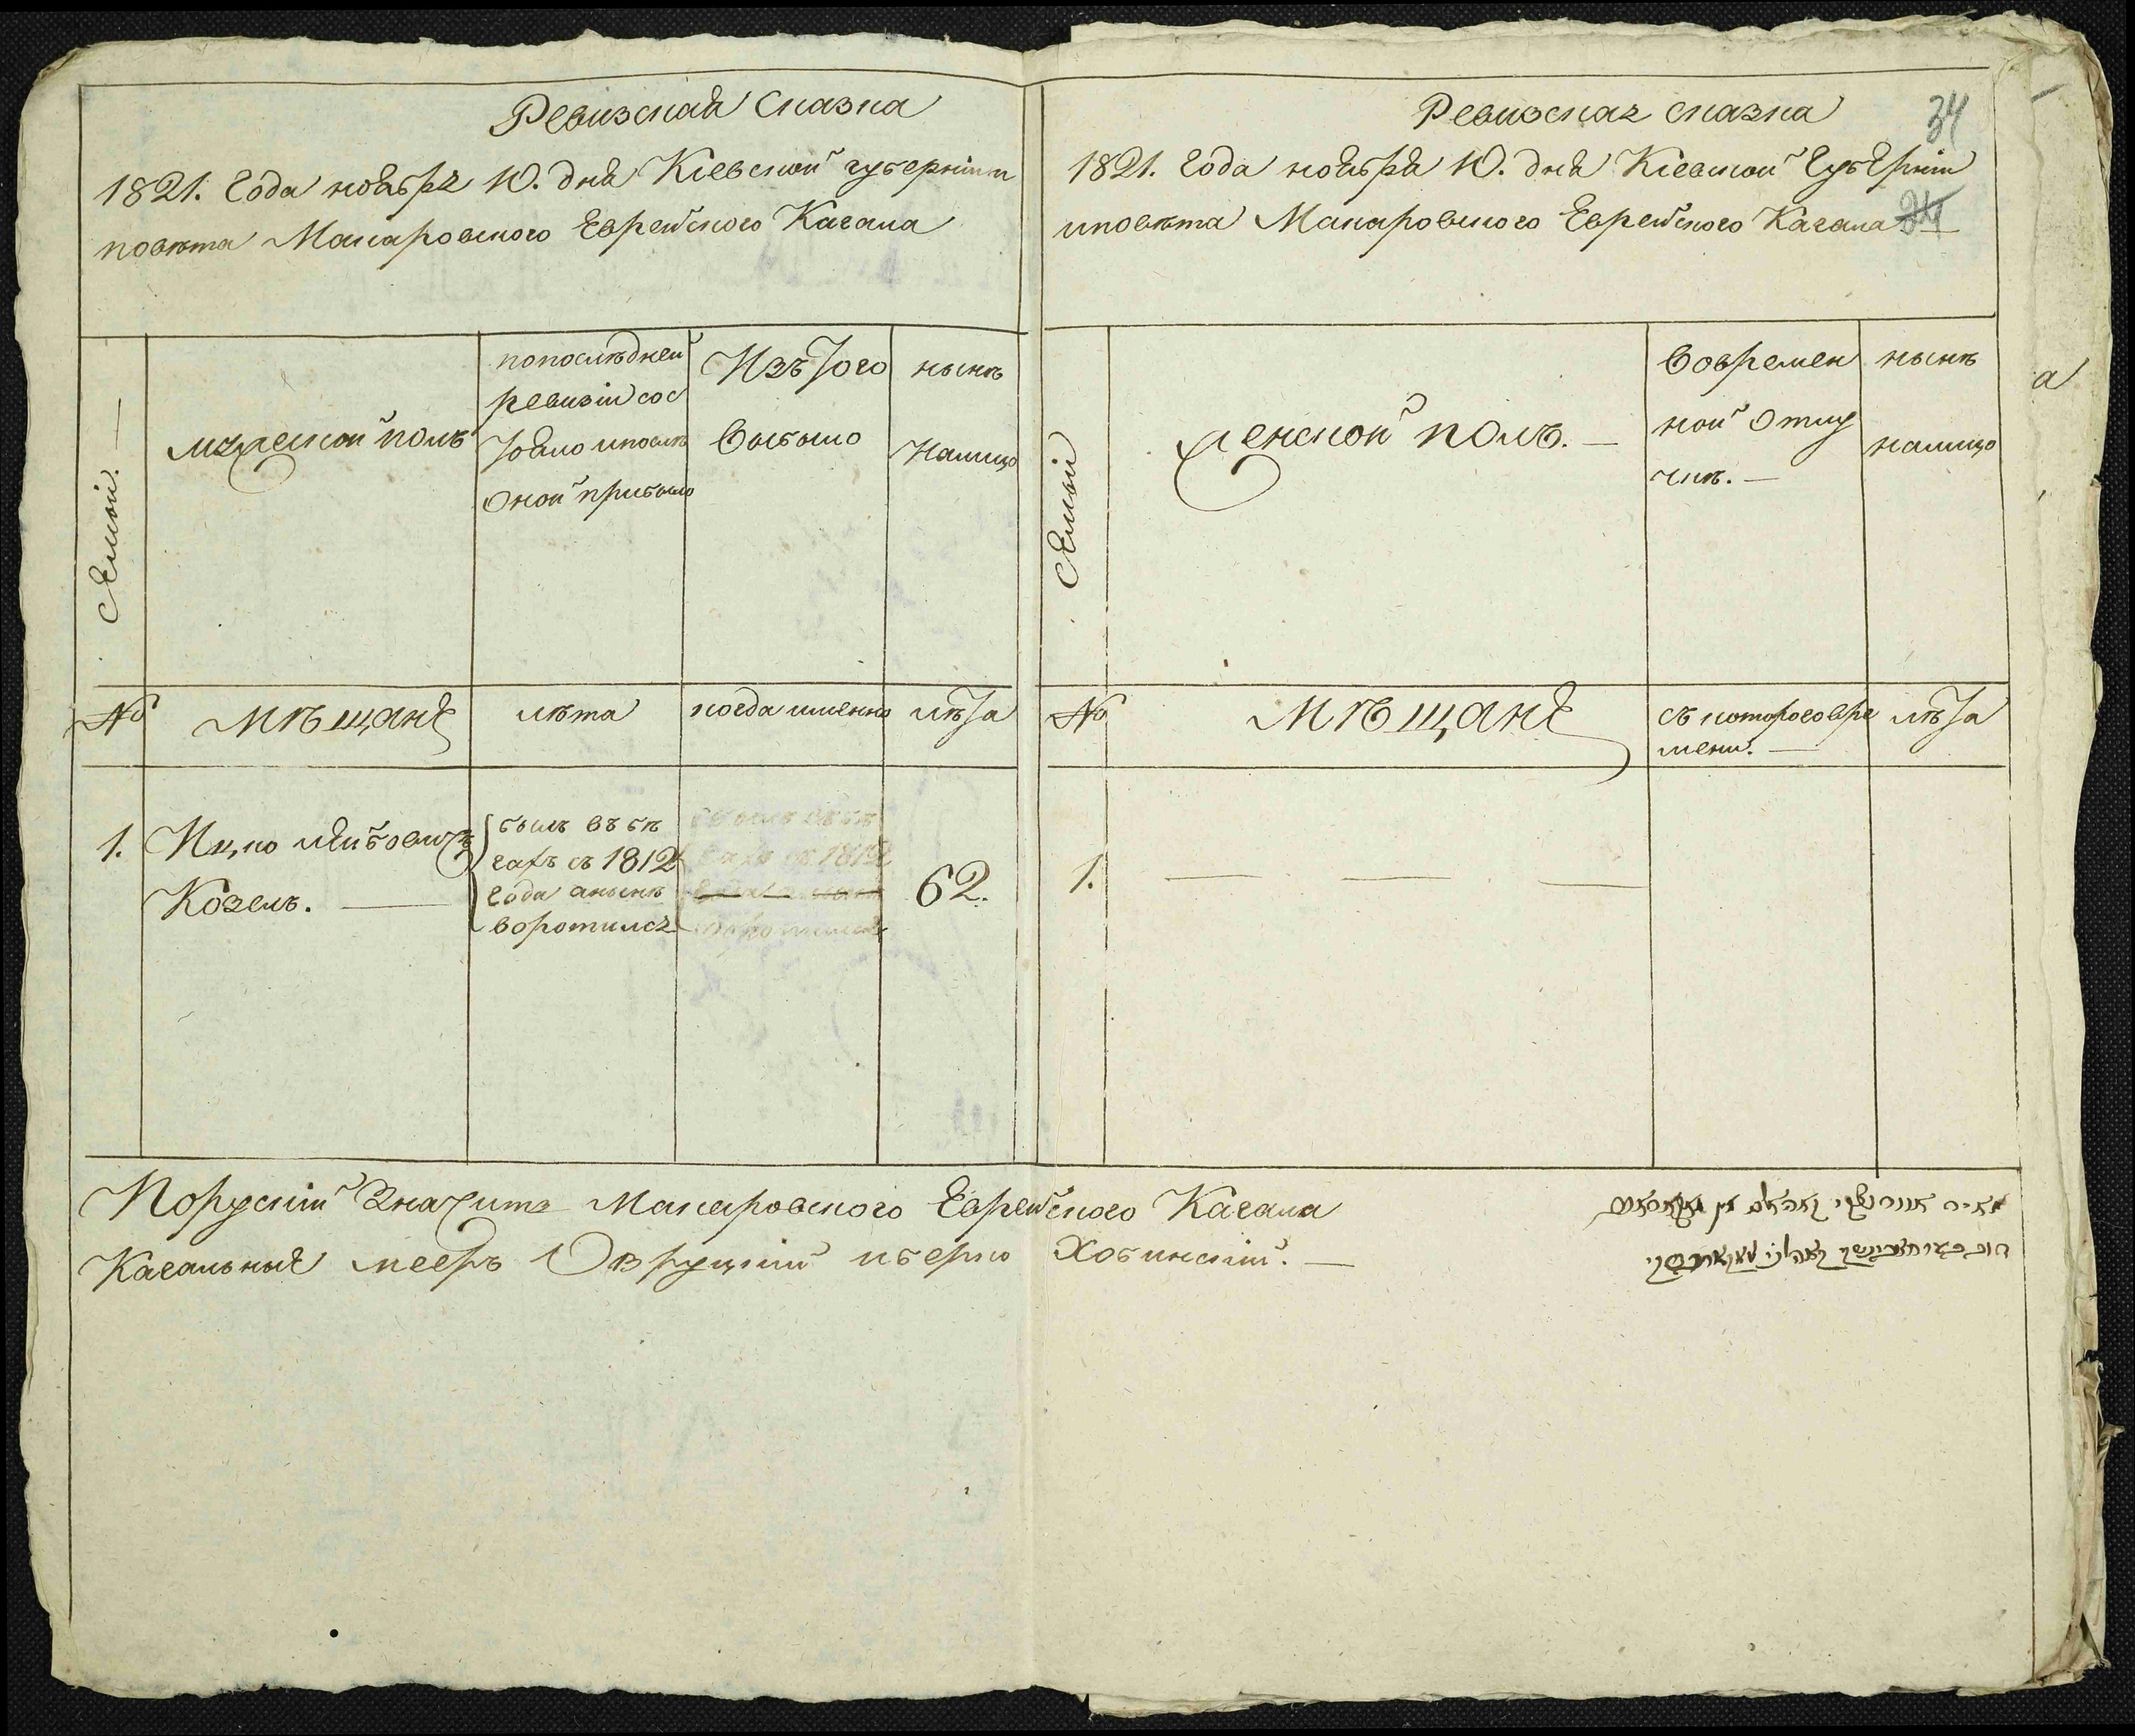 Ревизская Сказка
1821. Года ноября 10. дня Кіевской губерніи и
повѣта Макаровского Еврейского Кагала
Семьи.
мужеской полъ
попослѣдней
ревизіи сос
тояло ипослѣ
Оной прибыло
Изъ того
выбыло
нынѣ
налицо
№
мѣщане
лѣта
когда именно
лѣта
1.
Ицко Лейбовичъ
Козелъ.
былъ въ бѣ
гахъ съ 1812
года анынѣ
воротился
62.
34
Ревизская сказка
1821. Года ноября 10. дня Кіевской Губерніи
иповѣта Макаровского Еврейского Кагала
24
Семьи
женской полъ.
Вовремен
ной Отлу
чкѣ.
нынѣ
налицо
№
мѣщане
съ котораговре
мени.
лѣта
1.
Порускій Значитъ Макаровского Еврейского Кагала
Кагальные мееръ Овруцкій иберко Хобинскій.
а